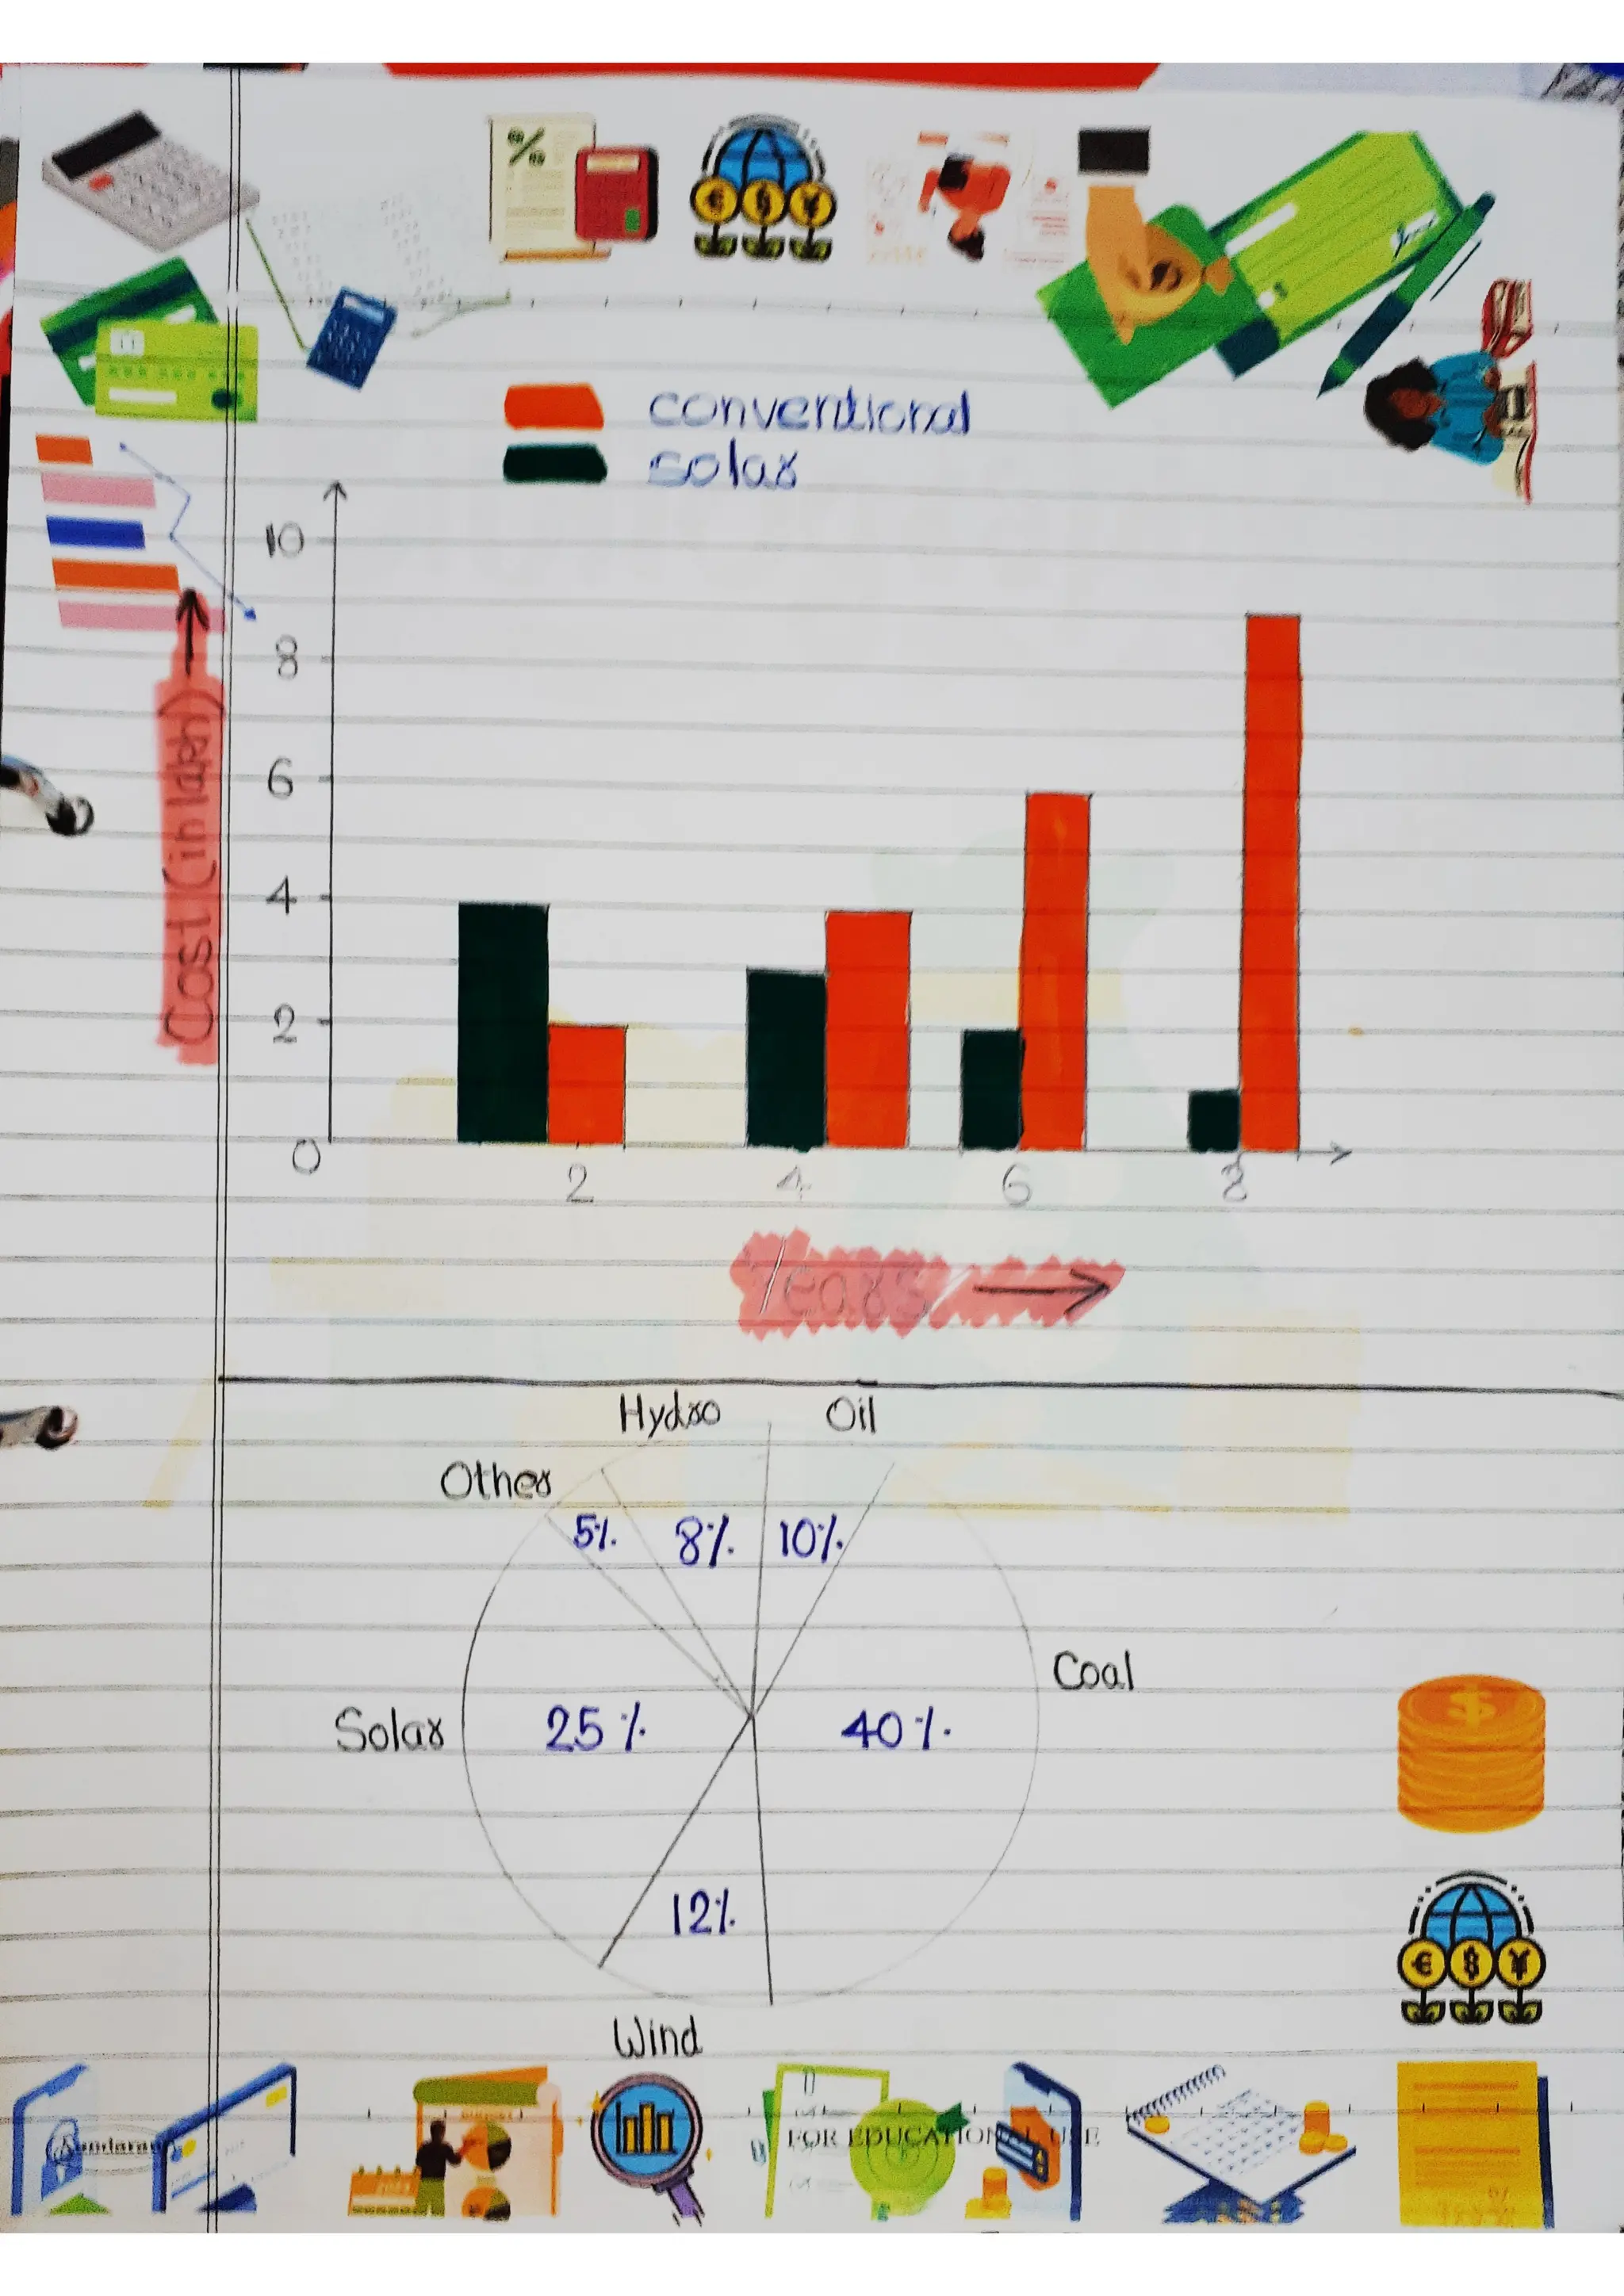 conventional
solar
10
8
6
4
2
0
Cost (in lakh)
2
4
6
8
Years
Hydro
Oil
Other
5%
8%
10%
Coal
Solar
25%
40%
12%
Wind
Sundaram
FOR EDUCATIONAL USE